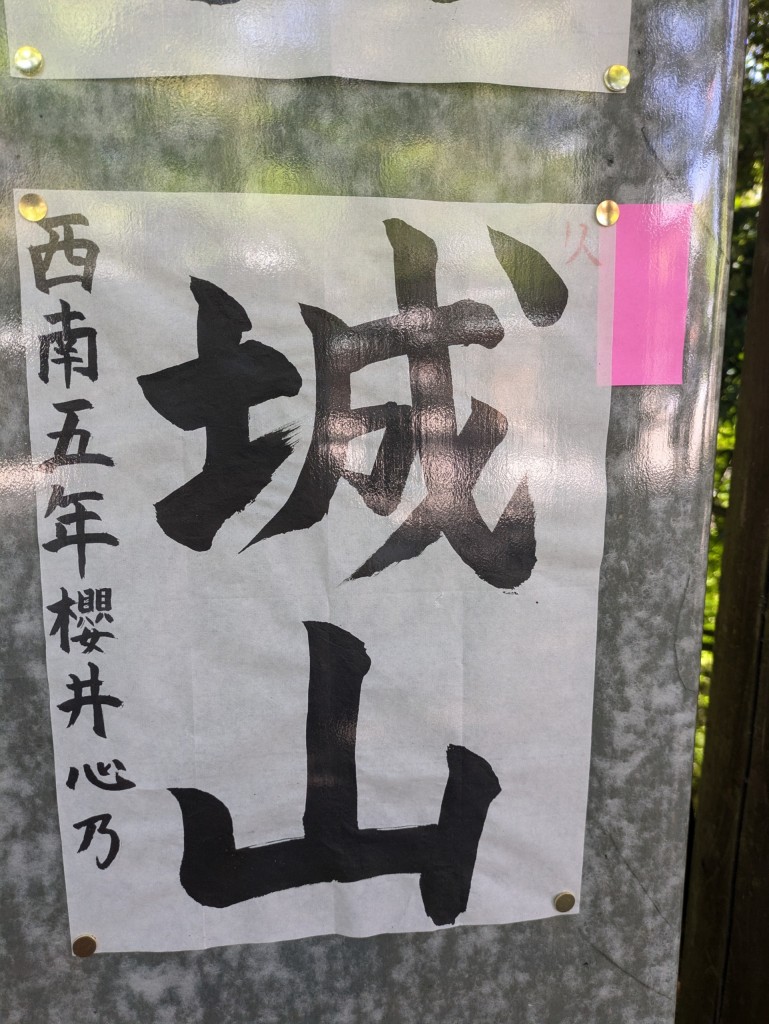 城山
西南五年櫻井心乃
久